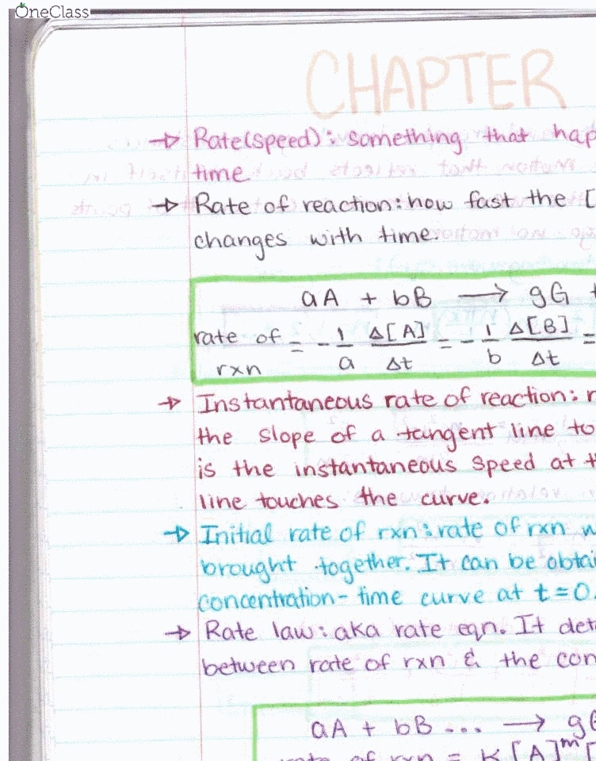 OneClass
CHAPTER
→ Rate(speed): something that hap
time
→ Rate of reaction: how fast the [
changes with time.
aA + bB → gG +
rate of rxn = - 1/a Δ[A]/Δt = - 1/b Δ[B]/Δt =
→ Instantaneous rate of reaction: r
the slope of a tangent line to
is the instantaneous speed at t
line touches the curve.
→ Initial rate of rxn: rate of rxn w
brought together. It can be obtai
concentration-time curve at t=0.
→ Rate law: aka rate eqn. It det
between rate of rxn & the con
aA + bB ... → gG
rate of rxn = K[A]^m[